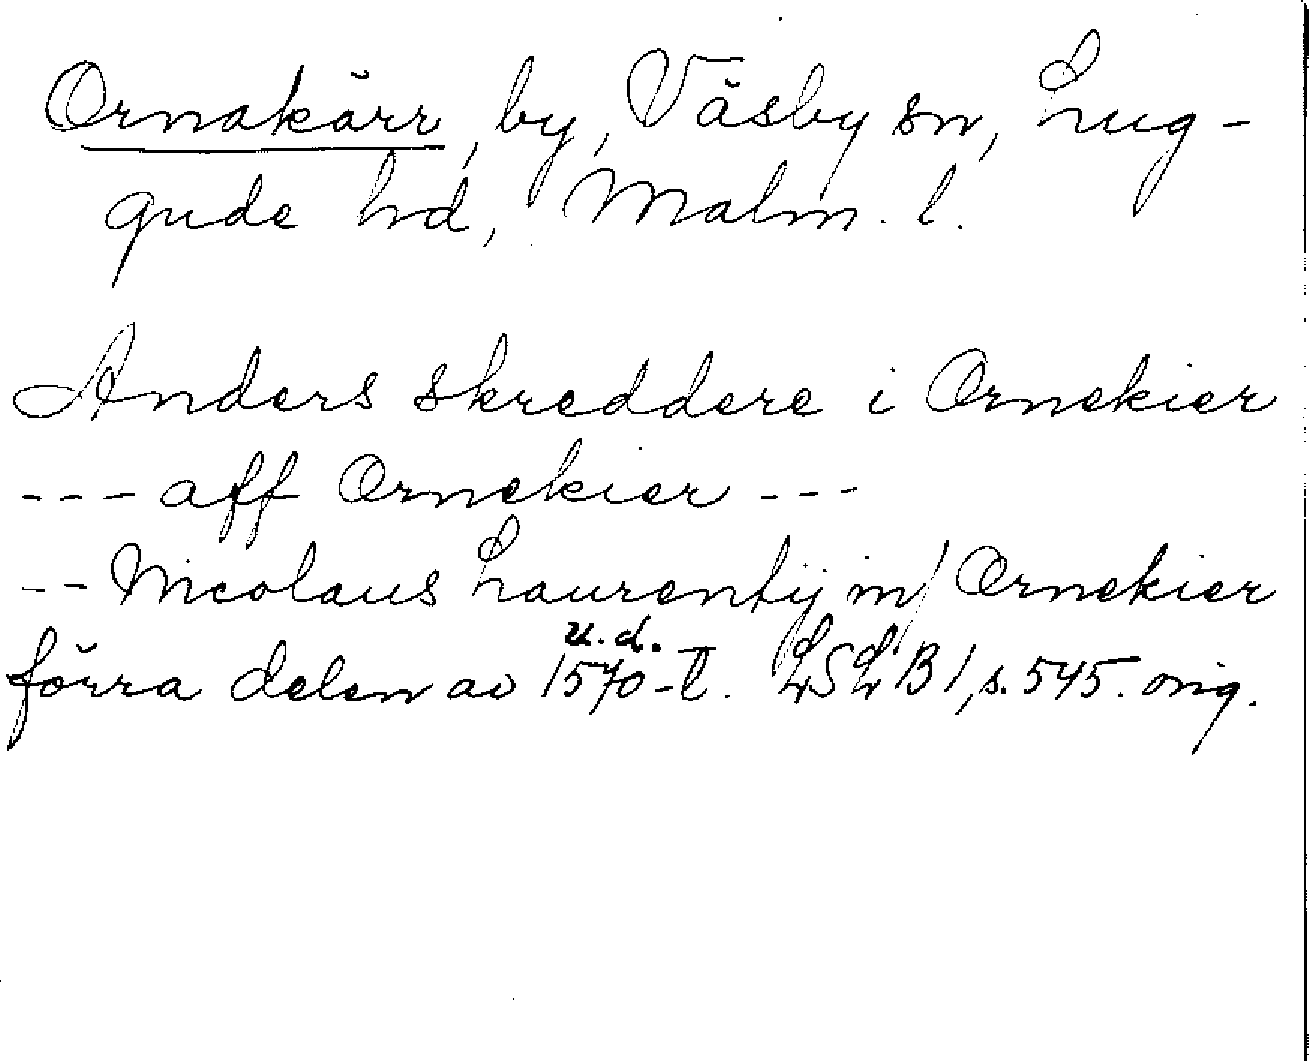 Ornakärr, by, Väsby sn, Lug-
gude hd, Malm. l.
Anders skreddere i Ornekier
--- aff Ornekier ---
-- Nicolaus Laurentij m/ Ornekier
u.d.
förra delen av 1570-t. LSLB1, s. 545. orig.